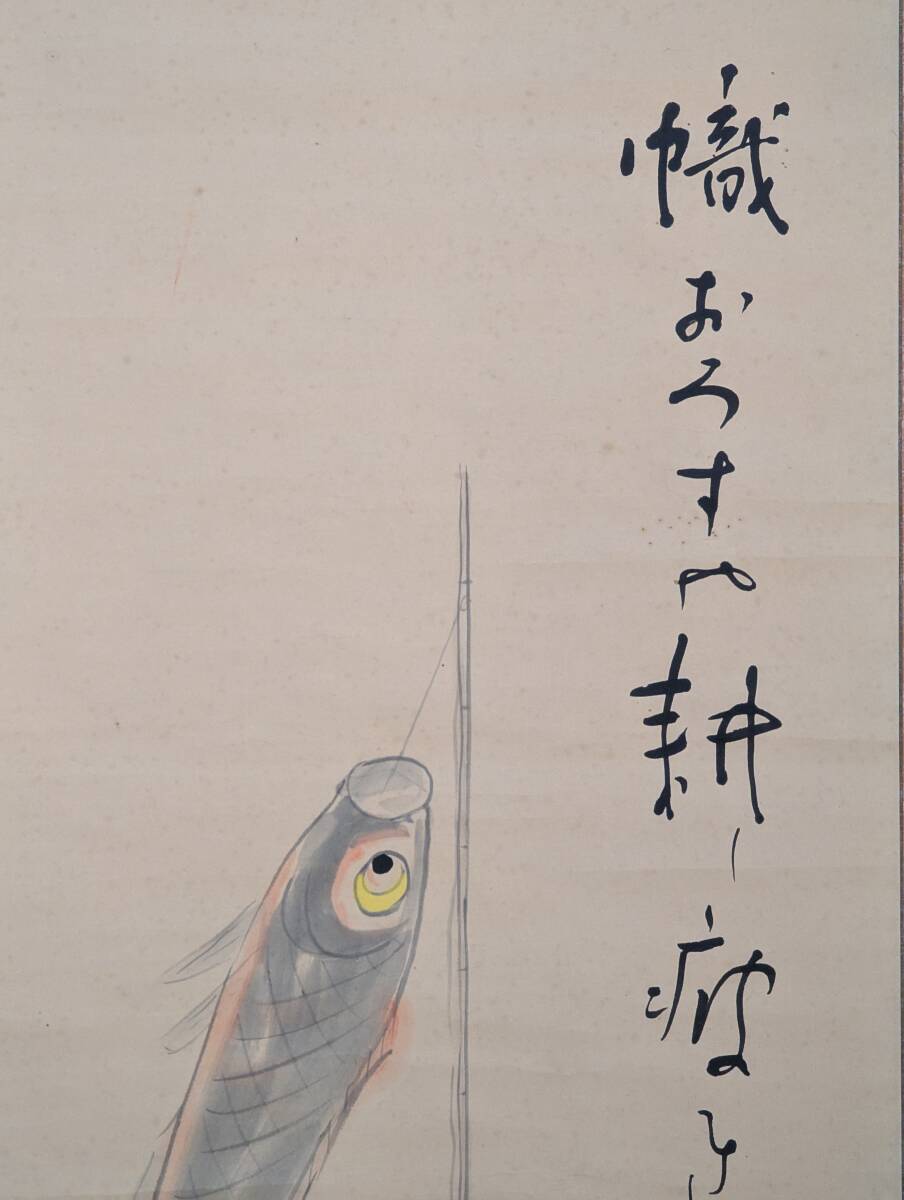 幟おろすや耕し疲